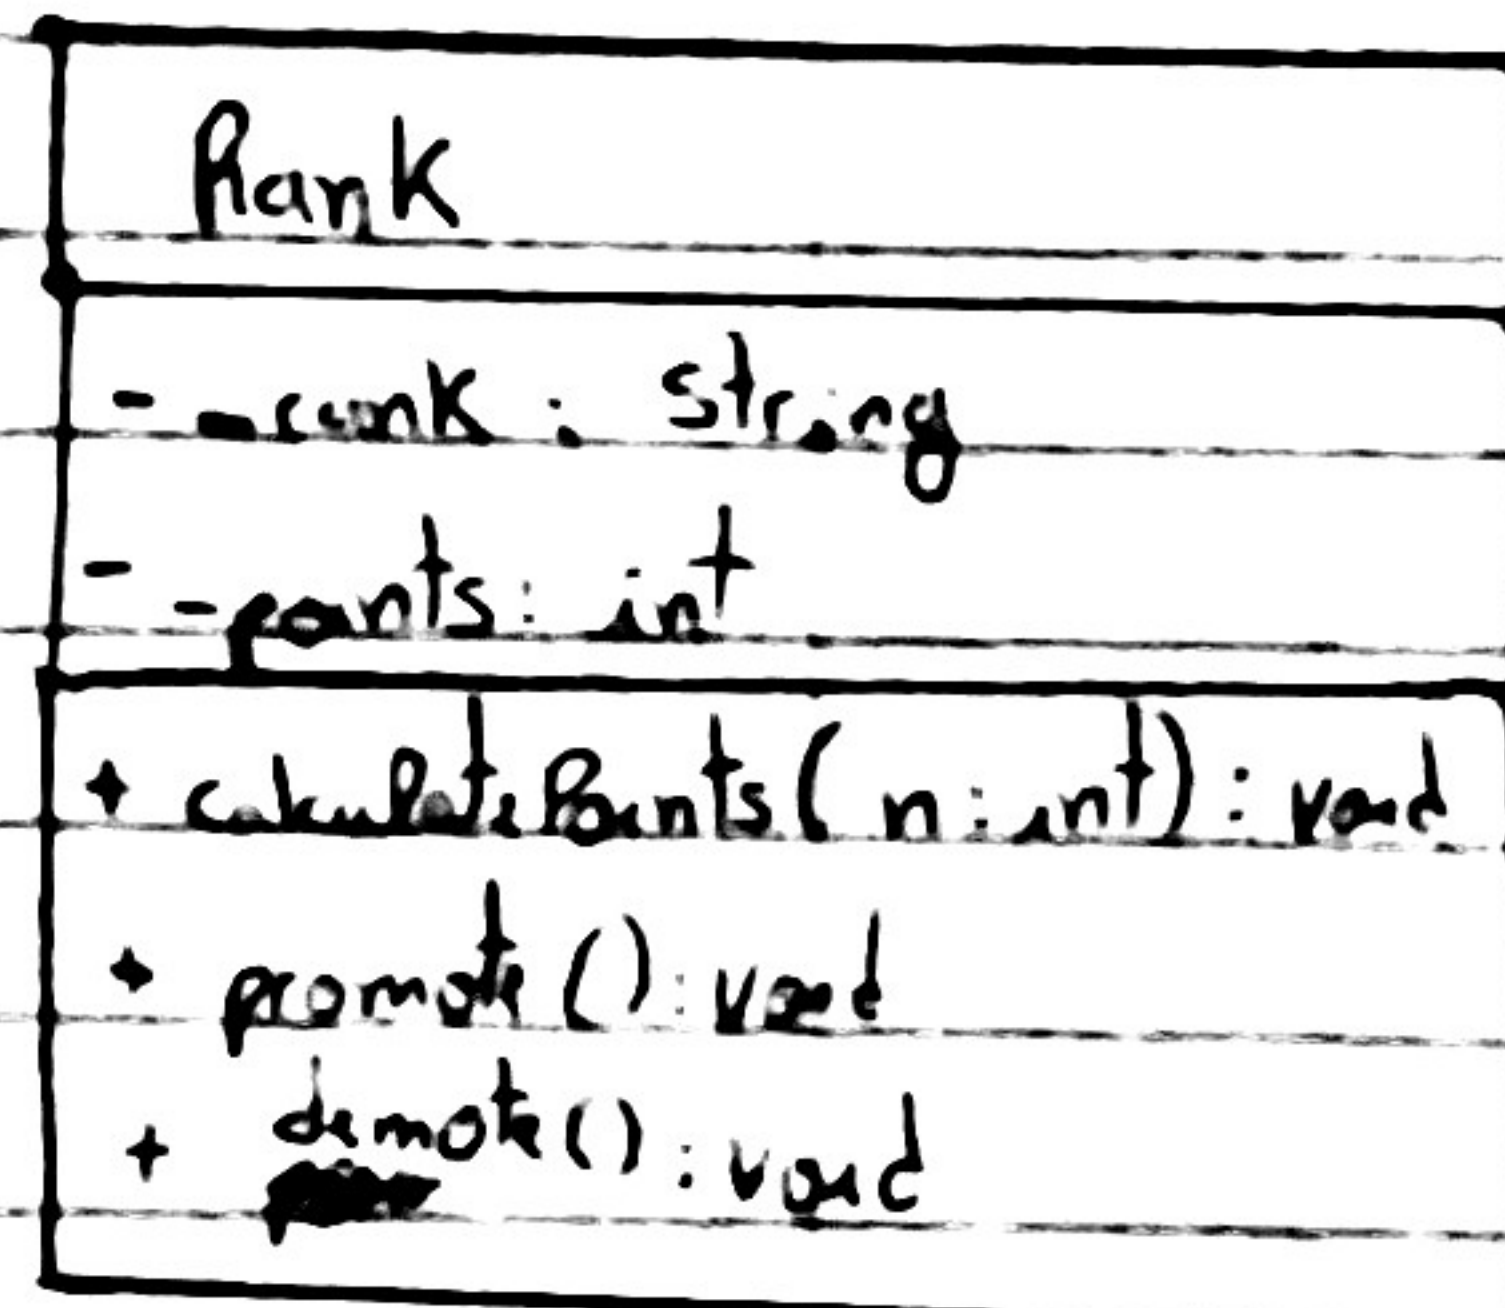 Rank
- _rank : string
- _points : int
+ calculatePoints( n : int) : void
+ promote () : void
+ demote () : void